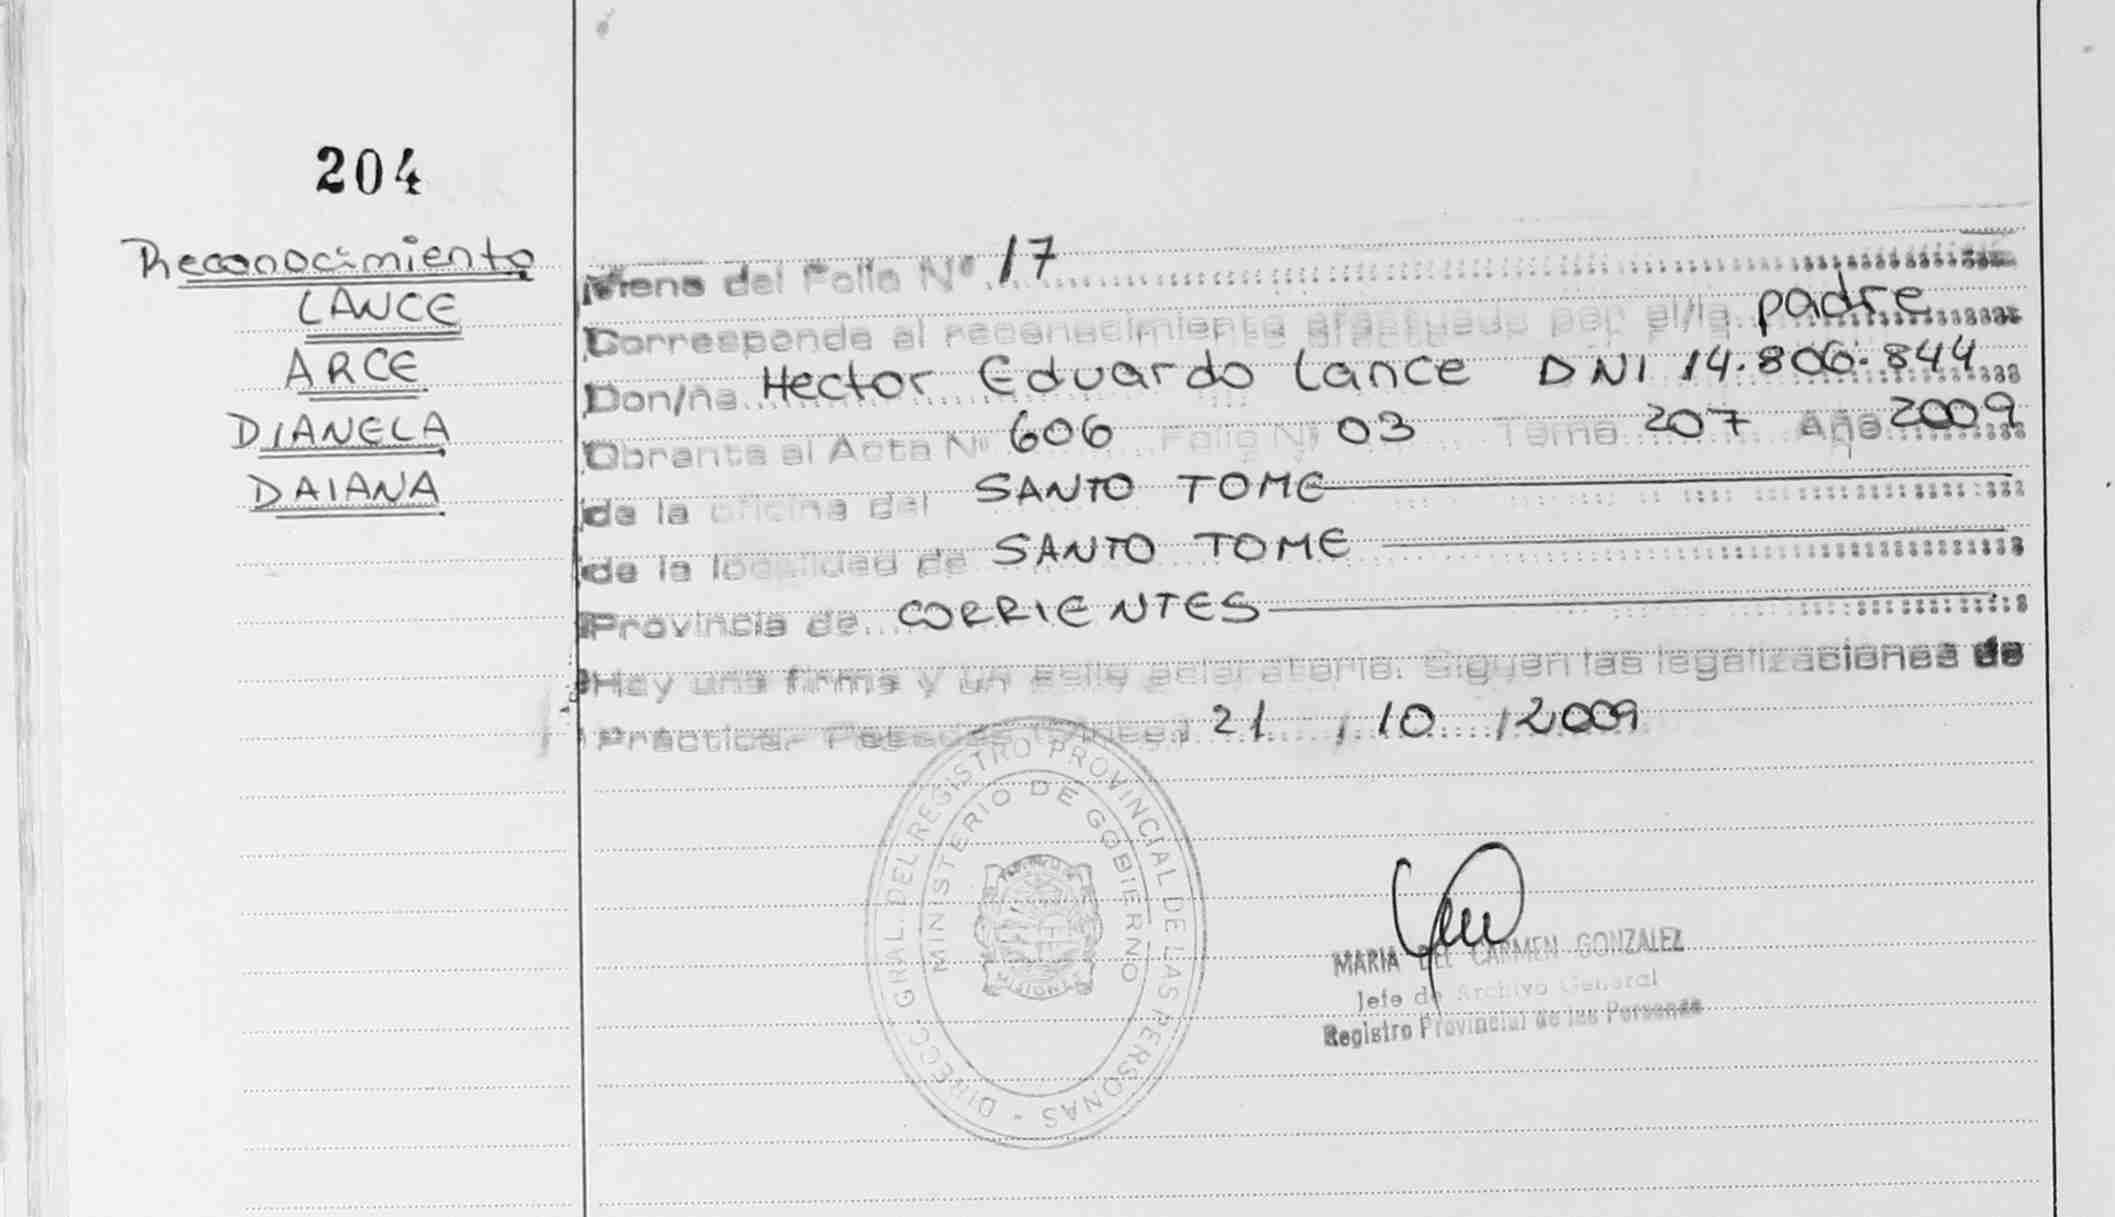 204
Reconocimiento
LANCE
ARCE
DIANELA
DAIANA
Viene del Folio Nº 17
Corresponde al reconocimiento efectuado por el/la padre
Don/ña Hector Eduardo Lance DNI 14.806.844
Obrante al Acta Nº 606 Folio Nº 03 Tomo 207 Año 2009
de la oficina del SANTO TOME
de la localidad de SANTO TOME
Provincia de CORRIENTES
Hay una firma y un sello aclaratorio. Siguen las legalizaciones de
Práctica.- Posadas 21 / 10 / 2009
DIRECC. GRAL. DEL REGISTRO PROVINCIAL DE LAS PERSONAS -
MINISTERIO DE GOBIERNO
MISIONES
MARIA DEL CARMEN GONZALEZ
Jefe de Archivo General
Registro Provincial de las Personas